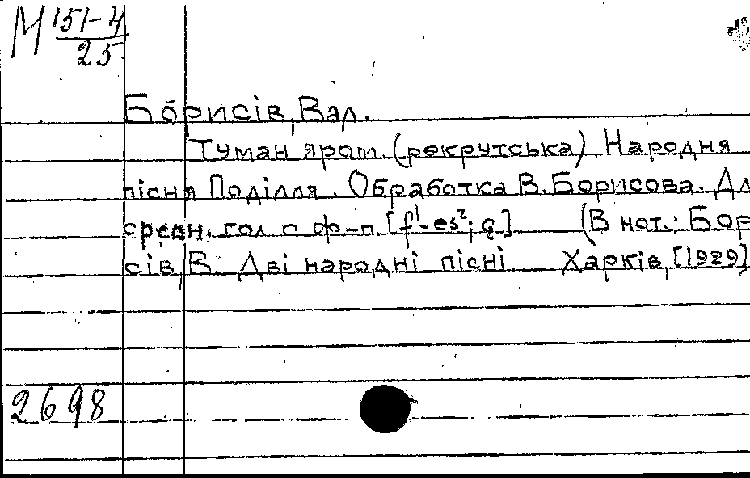 М 151-4
25
Борисів, Вал.
Туман яром. (рекрутська) Народня
пісня Поділля. Обработка В. Борисова. Дл
средн. гол. с ф-п. [f¹-es²; g.] (В нот.: Бор
сів, В. Дві народні пісні Харків, [1929]
2698